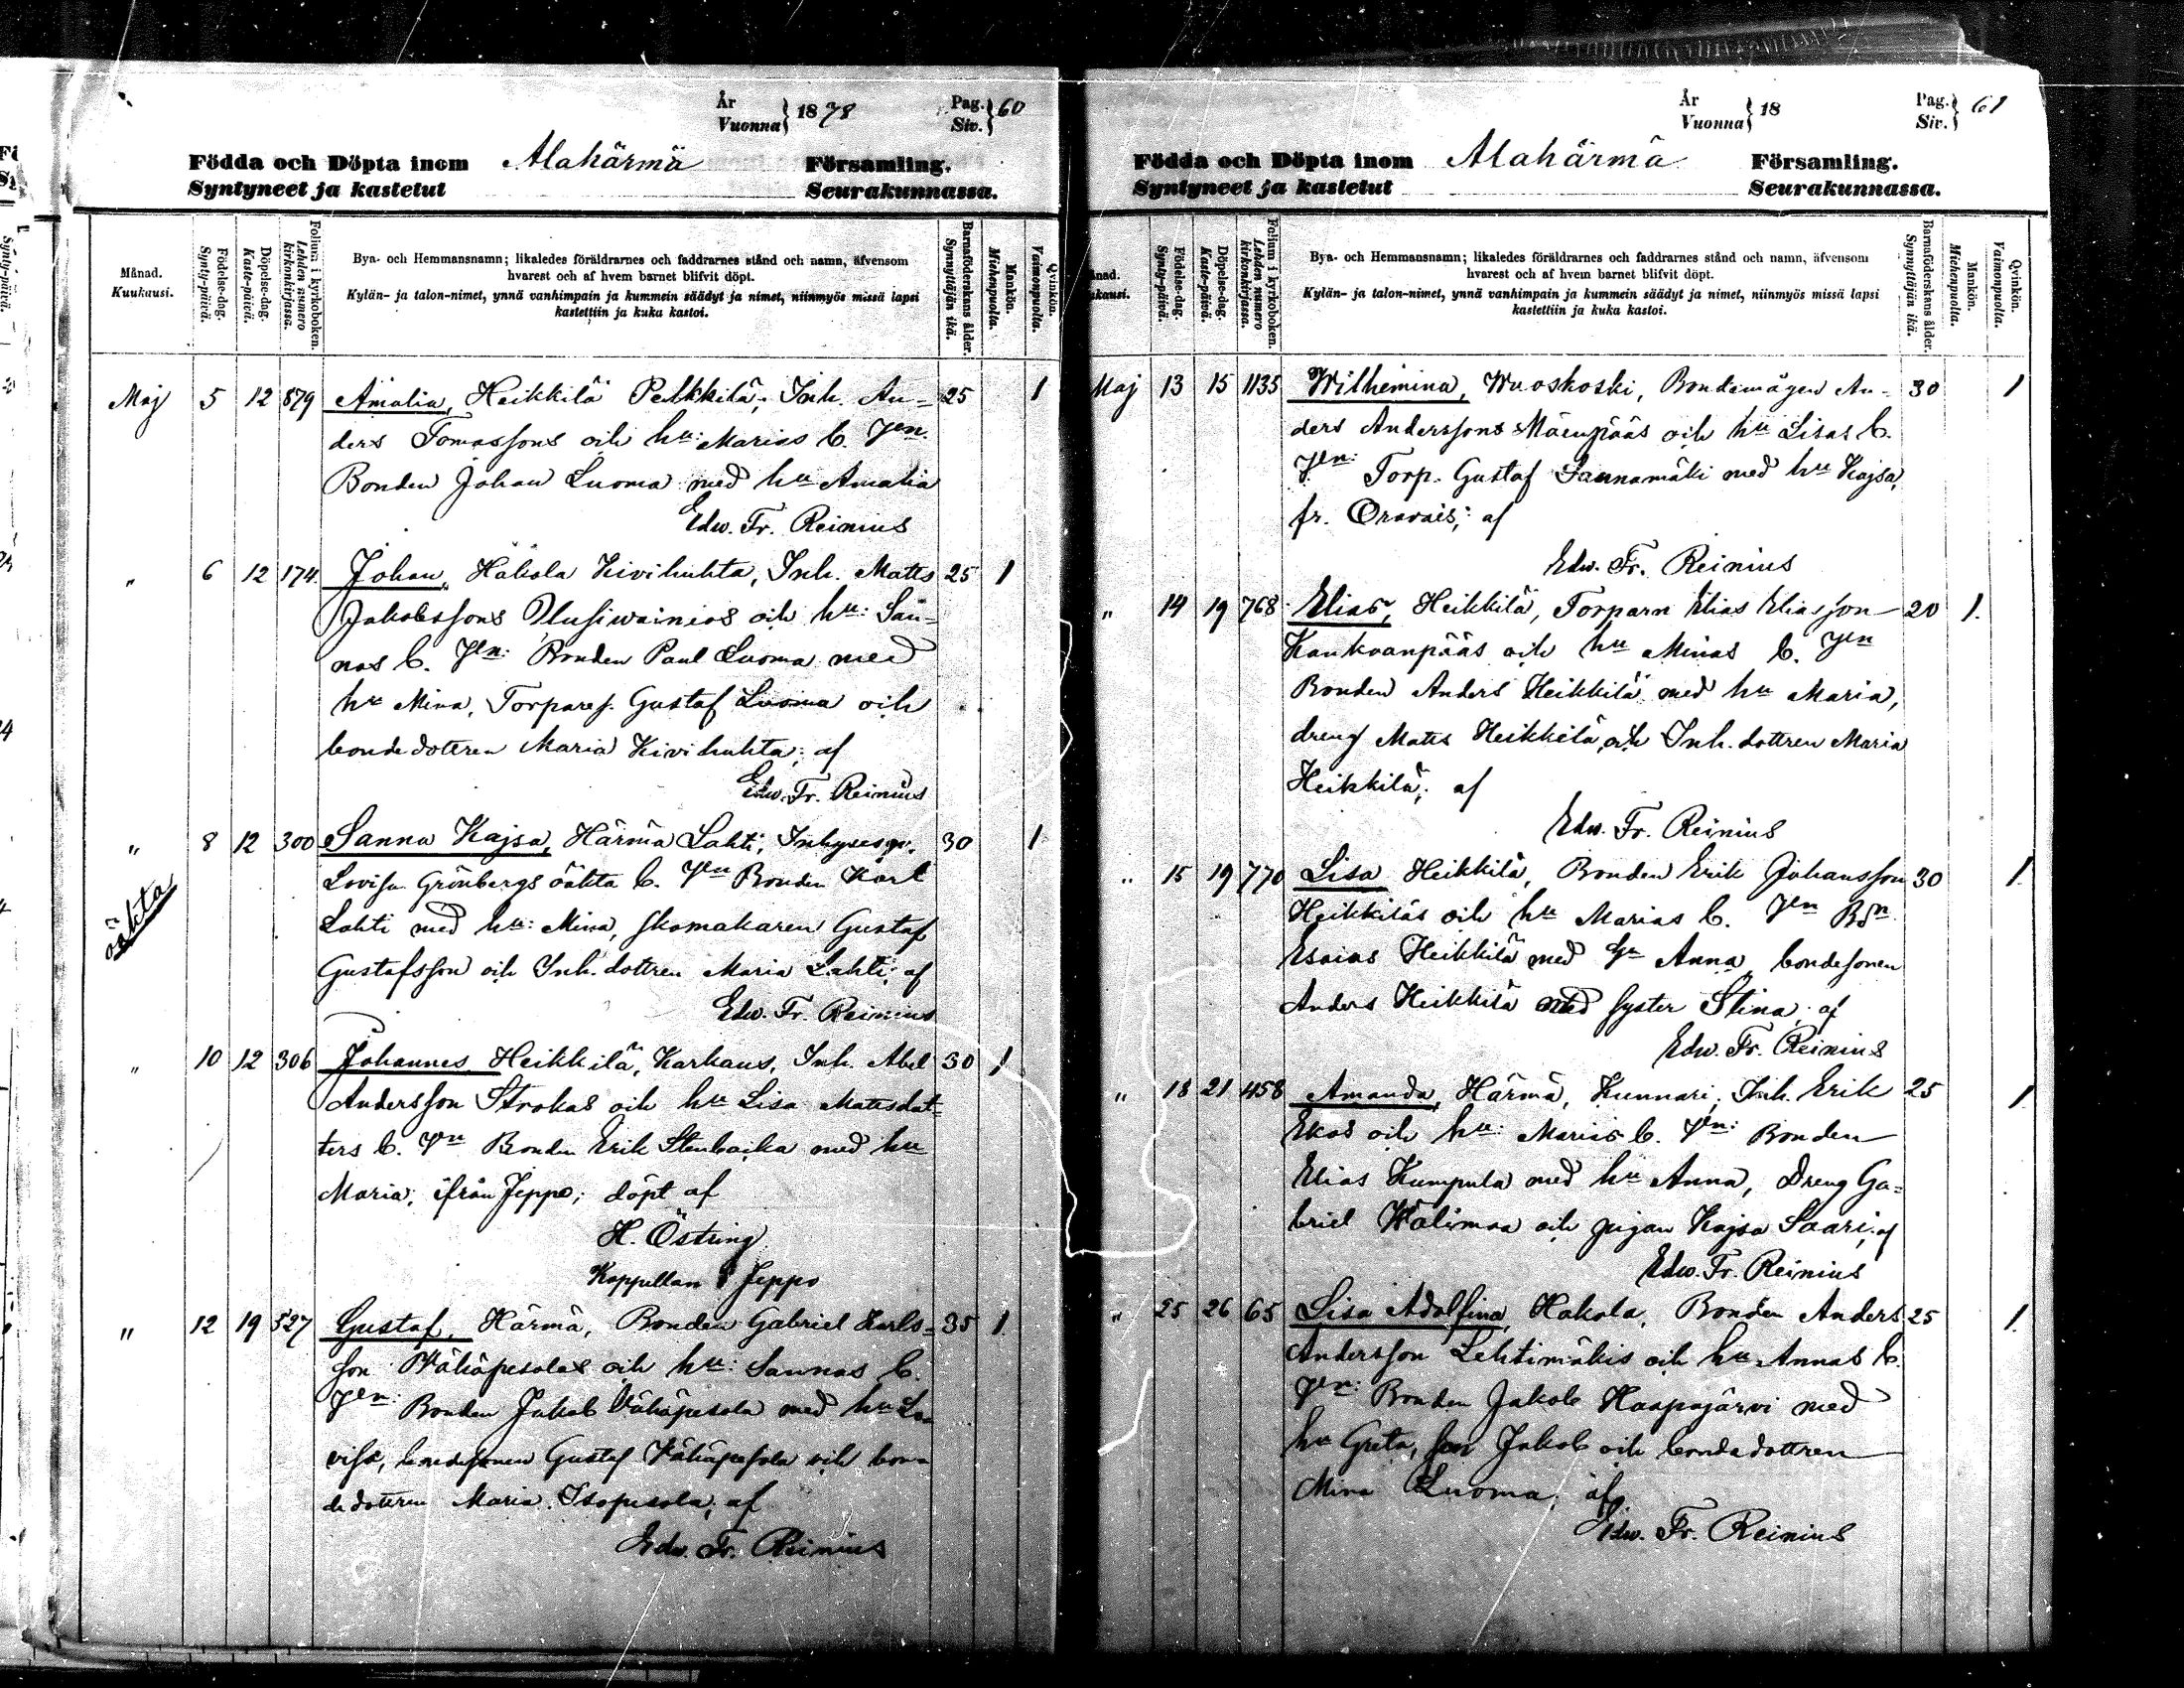 År
Vuonna } 1878
Pag.
Siv. } 60
Födda och Döpta inom Alahärmä Församling.
Syntyneet ja kastetut Seurakunnassa.
Månad.
Kuukausi.
Födelse-dag.
Synty-päivä.
Döpelse-dag.
Kaste-päivä.
Folium i kyrkoboken.
Lehden numero
kirkonkirjassa.
Bya- och Hemmansnamn; likaledes föräldrarnes och faddrarnes stånd och namn, äfvensom
hvarest och af hvem barnet blifvit döpt.
Kylän- ja talon-nimet, ynnä vanhimpain ja kummein säädyt ja nimet, niinmyös missä lapsi
kastettiin ja kuka kastoi.
Barnaföderskans ålder.
Synnyttäjän ikä.
Mankön.
Miehenpuolta.
Qvinkön.
Vaimonpuolta.
Maj 5 12 879 Amalia, Heikkilä Pelkkilä, Inh. An= 25 1
ders Tomassons och hu: Marias b. Jen.
Bonden Johan Luoma med hu Amalia
Edw. Fr. Reinius
" 6 12 174. Johan, Hakola Kivihuhta, Inh. Matts 25 1
Jakobssons och hu: San=
nas b. Jen: Bonden Paul Luoma med
hu Mina, Torparef. Gustaf Luoma och
bondedottren Maria Kivihuhta; af
Edw. Fr. Reinius
" 8 12 300 Sanna Kajsa, Härmä Lahti, Inhyses p. 30 1
oäkta
Lovisa Grönbergs oäkta b. Jen Bonden Karl
Lahti med hu: Mina, skomakaren Gustaf
Gustafsson och Inh. dottren Maria Lahti; af
Edw. Fr. Reinius
" 10 12 306 Johannes Heikkilä, Karhaus, Inh. Abel 30 1
Andersson Strokas och hu Lisa Mattsdot=
ters b. Jen Bonden Erik Stenbacka med hu
Maria; ifrån Jeppo; döpt af
H. Östring
Kappellan i Jeppo
" 12 19 527 Gustaf, Härmä, Bonden Gabriel Karls= 35 1.
son Wähäpesolas och hu: Sannas b.
Jen: Bonden Jakob Wähäpesola med hu Lo
visa, bondesonen Gustaf Wähäpesola och bon=
dedottren Maria Isopesola; af
Edw. Fr. Reinius
År
Vuonna } 18
Pag.
Siv. } 61
Födda och Döpta inom Alahärmä Församling.
Syntyneet ja kastetut Seurakunnassa.
ånad.
ukausi.
Födelse-dag.
Synty-päivä.
Döpelse-dag.
Kaste-päivä.
Folium i kyrkoboken.
Lehden numero
kirkonkirjassa.
Bya- och Hemmansnamn; likaledes föräldrarnes och faddrarnes stånd och namn, äfvensom
hvarest och af hvem barnet blifvit döpt.
Kylän- ja talon-nimet, ynnä vanhimpain ja kummein säädyt ja nimet, niinmyös missä lapsi
kastettiin ja kuka kastoi.
Barnaföderskans ålder.
Synnyttäjän ikä.
Mankön.
Miehenpuolta.
Qvinkön.
Vaimonpuolta.
Maj 13 15 1135 Wilhemina, Wuoskoski, Bondemågen An- 30 1
ders Anderssons Mäenpääs och hu Lisas b.
Jen: Torp. Gustaf Sannamäki med hu Kajsa,
fr. Oravais; af
Edw. Fr. Reinius
" 14 19 768 Elias, Heikkilä, Torparn Elias Eliasson 20 1.
Kankaanpääs och hu Minas b. Jen
Bonden Anders Heikkilä med hu Maria,
dreng Matts Heikkilä och Inh. dottren Maria
Heikkilä; af
Edw. Fr. Reinius
" 15 19 770 Lisa Heikkilä, Bonden Erik Johansson 30 1
Heikkiläs och hu Marias b. Jen Bdn
Esaias Heikkilä med hu Anna, bondesonen
Anders Heikkilä med syster Stina; af
Edw. Fr. Reinius
" 18 21 458 Amanda, Härmä, Kunnari, Inh. Erik 25 1
Ekos och hu: Marias b. Jen: Bonden
Elias Kumpula med hu Anna, Dreng Ga=
briel Wälimaa och pigan Kajsa Saari; af
Edw. Fr. Reinius
" 25 26 65 Lisa Adolfina, Hakola, Bonden Anders 25 1.
Andersson Lehtimäkis och hu Annas b.
Jen: Bonden Jakob Haapajärvi med
hu Greta, son Jakob och bondedottren
Mina Luoma; af
Edw. Fr. Reinius